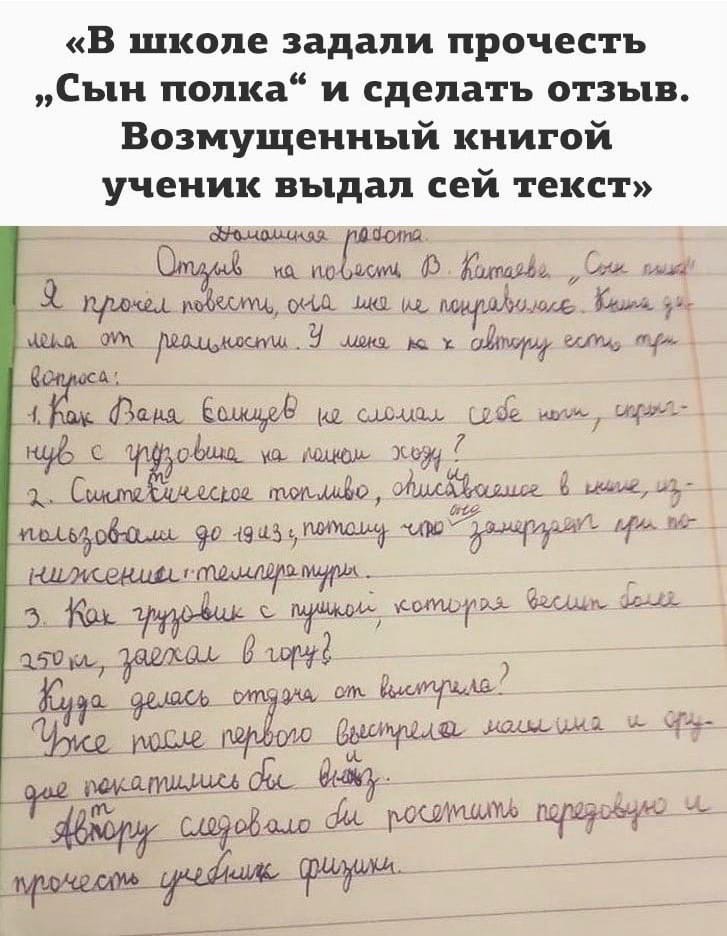 «В школе задали прочесть
„Сын полка“ и сделать отзыв.
Возмущенный книгой
ученик выдал сей текст»
Домашняя работа.
Отзыв на повесть В. Катаева „Сын полка"
Я прочёл повесть, она мне не понравилась. Книга да-
лека от реальности. У меня к автору есть три
вопроса:
1. Как Ваня Солнцев не сломал себе ноги, спрыг-
нув с грузовика на полном ходу?
2. Синтетическое топливо, описываемое в книге, из-
пользовали до 1943 г, потому что оно замерзает при по-
нижении температуры.
3. Как грузовик с пушкой, которая весит более
250 кг, заехал в гору?
Куда делась отдача от выстрела?
Уже после первого выстрела машина и ору-
дие покатились бы вниз.
Автору следовало бы посетить передовую и
прочесть учебник физики.